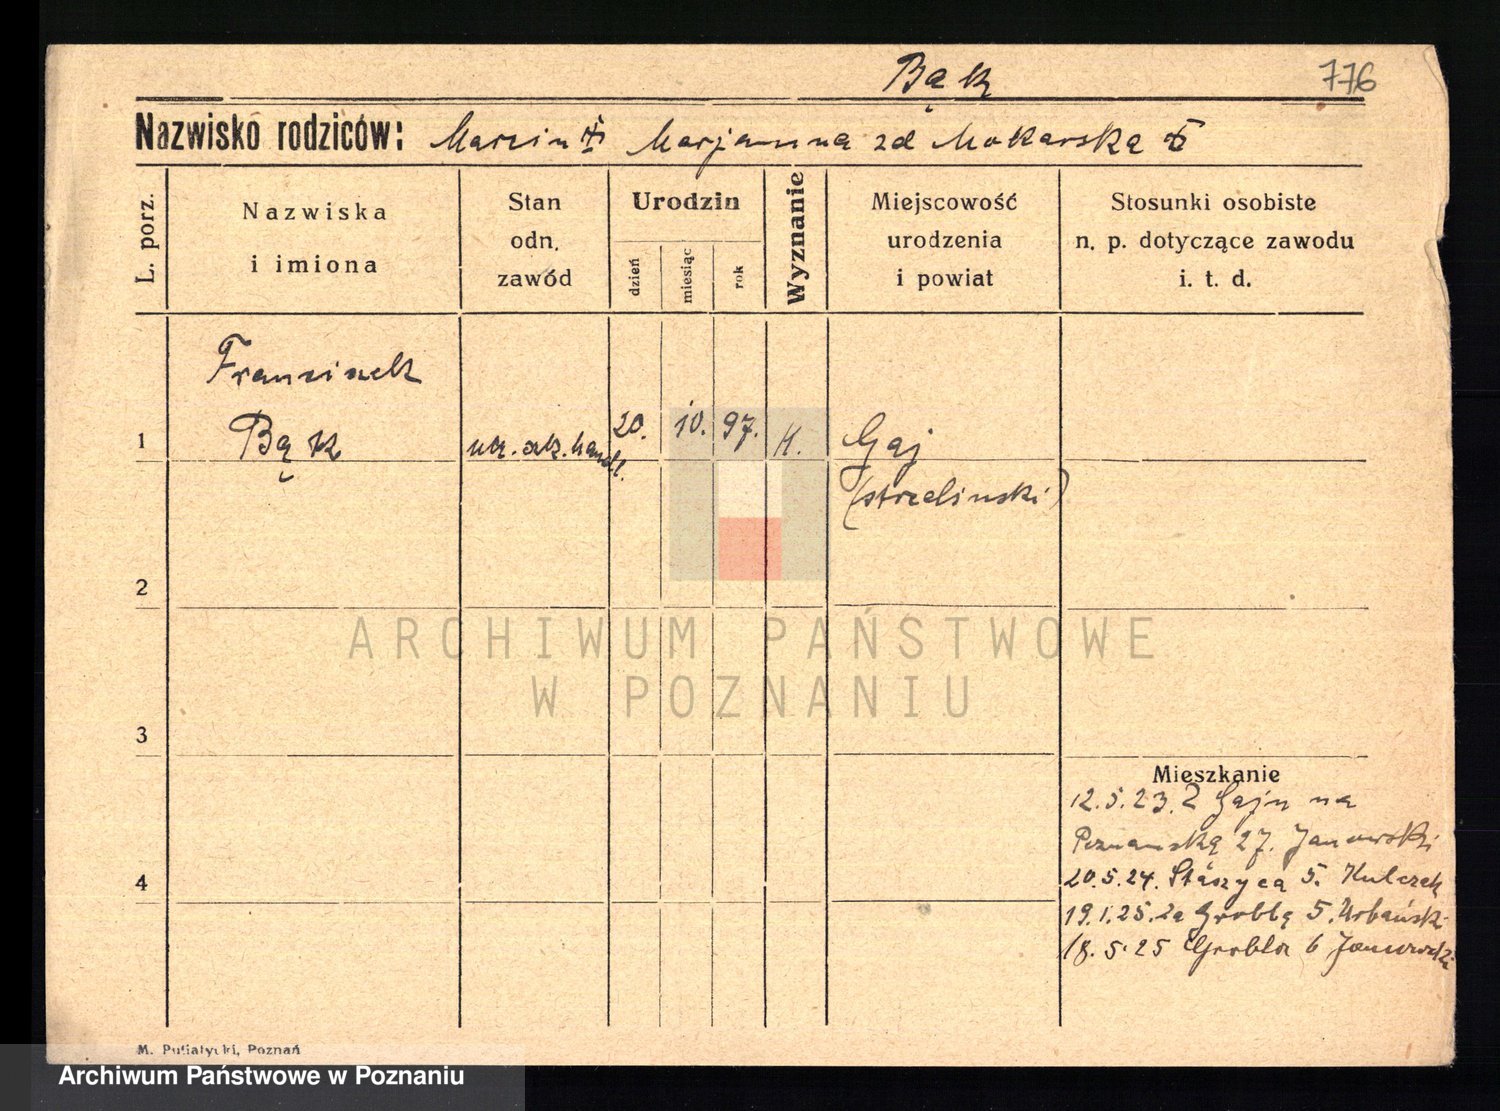 Bąk
776
Nazwisko rodziców: Marcin Marjanna zd Mokarska
L. porz.
Nazwiska
i imiona
Stan
odn.
zawód
Urodzin
dzień
miesiąc
rok
Wyznanie
Miejscowość
urodzenia
i powiat
Stosunki osobiste
n. p. dotyczące zawodu
i. t. d.
Franciszek
1 Bąk 20. 10. 97. K. Gaj
(strzelinski)
2
3
Mieszkanie
12.5.23. Z Gaju na
Poznańską 27. Janowski
4
20.5.24. Staszyca 5. Kulczek
19.1.25. za Groblą 5. Urbański
18.5.25 Grobla 6 Janowski
M. Putiatycki, Poznań
ARCHIWUM PAŃSTWOWE
W POZNANIU
Archiwum Państwowe w Poznaniu